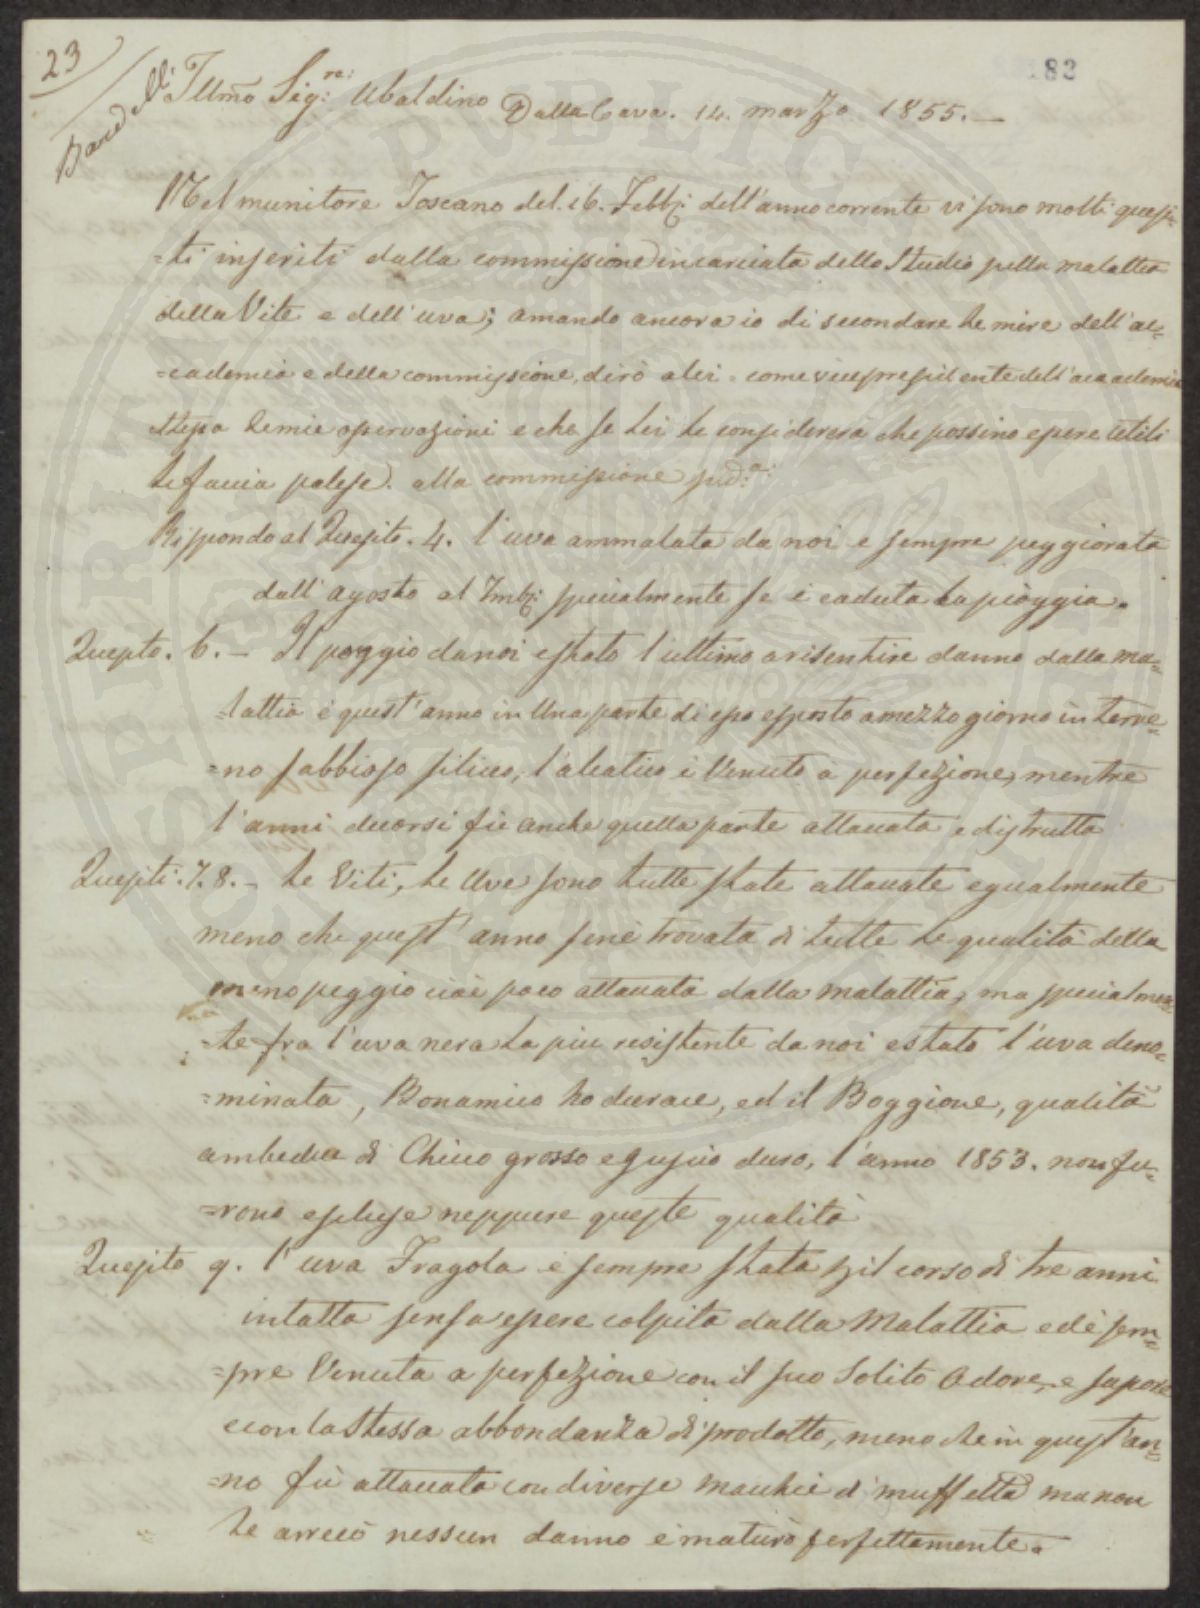 23
182
Bandelli
Illmo Sigre: Ubaldino Dalla Cava. 14. marzo 1855.—
Nel munitore Toscano del. 16. Febbj: dell'anno corrente vi sono molti quesi=
=ti inseriti dalla commissione incaricata dello Studio sulla malattia
della Vite e dell'uva; amando ancora io di secondare le mire dell'ac=
=cademia e della commissione, dirò a lei - come vicepresidente dell'accademia
stessa le mie osservazioni e che se Lei le considererà che possino essere utili
le faccia palese. alla commissione sudª:
Rispondo al Quesito. 4. l'uva ammalata da noi è sempre peggiorata
dall'agosto al 7mbj: specialmente se è caduta la pioggia.
Quesito. 6. — Il poggio da noi è stato l'ultimo a risentire danno dalla ma=
=lattia e quest'anno in Una parte di esso esposto a mezzo giorno in terre=
=no sabbioso siliceo, l'aleatico è Venuto a perfezione, mentre
l'anni decorsi fù anche quella parte attaccata e distrutta
Quesiti. 7. 8. — Le Viti, Le Uve sono tutte state attaccate egualmente
meno che quest'anno sene trovata di tutte le qualità della
meno peggio cioè poco attaccata dalla malattia, ma specialmen=
=te fra l'uva nera la piu resistente da noi è stato l'uva deno=
=minata, Bonamico ho durace, ed il Boggione, qualità
ambedua di Chicco grosso e guscio duro, l'anno 1853. non fu=
=rono escluse neppure queste qualità
Quesito 9. l'uva Fragola è sempre stata pil corso di tre anni
intatta sensa essere colpita dalla Malattia ed è sem=
=pre Venuta a perfezione con il suo Solito Odore, e sapore
e con la Stessa abbondanza di prodotto, meno che in quest'an=
=no fù attaccata con diverse macchie di muffetta ma non
le arrecò nessun danno e maturò perfettamente.